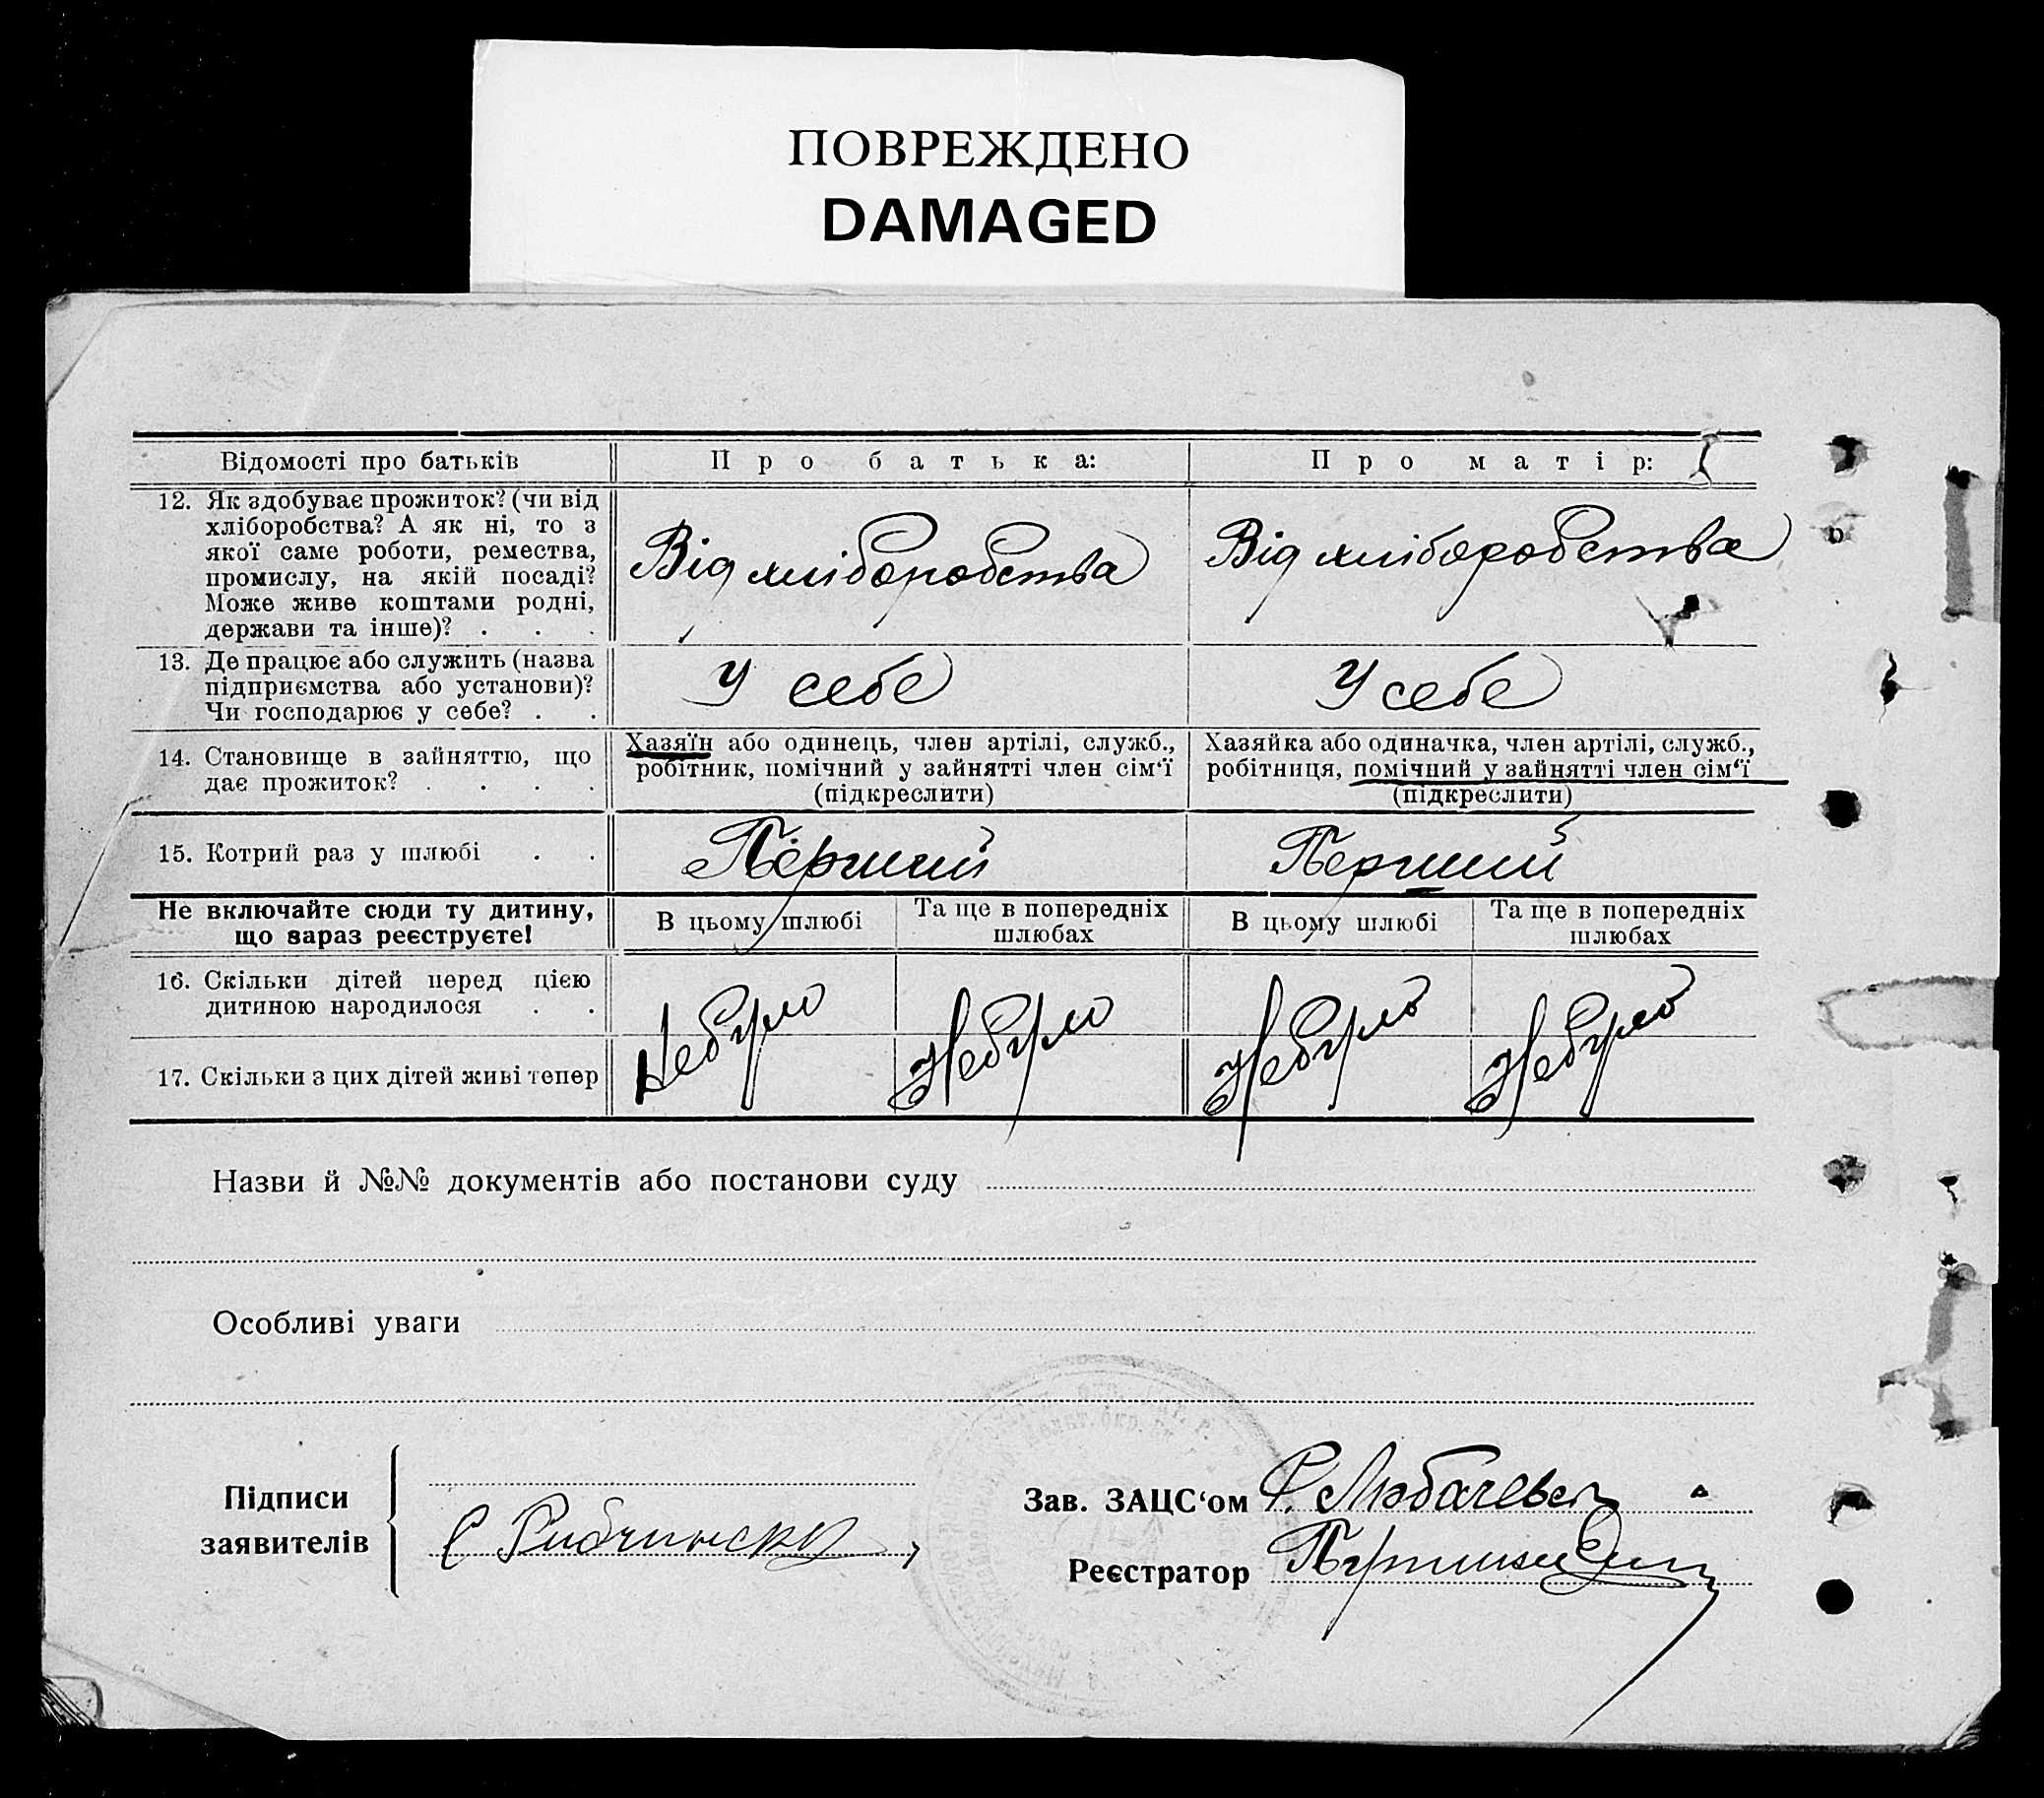 ПОВРЕЖДЕНО
DAMAGED
Відомості про батьків
Про батька:
Про матір:
12. Як здобуває прожиток? (чи від
хліборобства? А як ні, то з
якої саме роботи, ремества,
промислу, на якій посаді?
Може живе коштами родні,
держави та інше)? . . .
Від хліборобства
Від хліборобства
13. Де працює або служить (назва
підприємства або установи)?
Чи господарює у себе? . .
У себе
У себе
14. Становище в зайняттю, що
дає прожиток? . . . .
Хазяїн або одинець, член артілі, служб.,
робітник, помічний у зайнятті член сім‘ї
(підкреслити)
Хазяйка або одиначка, член артілі, служб.,
робітниця, помічний у зайнятті член сім‘ї
(підкреслити)
15. Котрий раз у шлюбі . .
Перший
Перший
Не включайте сюди ту дитину,
що зараз реєструєте!
В цьому шлюбі
Та ще в попередніх
шлюбах
В цьому шлюбі
Та ще в попередніх
шлюбах
16. Скільки дітей перед цією
дитиною народилося . .
17. Скільки з цих дітей живі тепер
Небуло
Небуло
Небуло
Небуло
Назви й №№ документів або постанови суду
Особливі уваги
Підписи
заявителів
Зав. ЗАЦС‘ом
Реєстратор